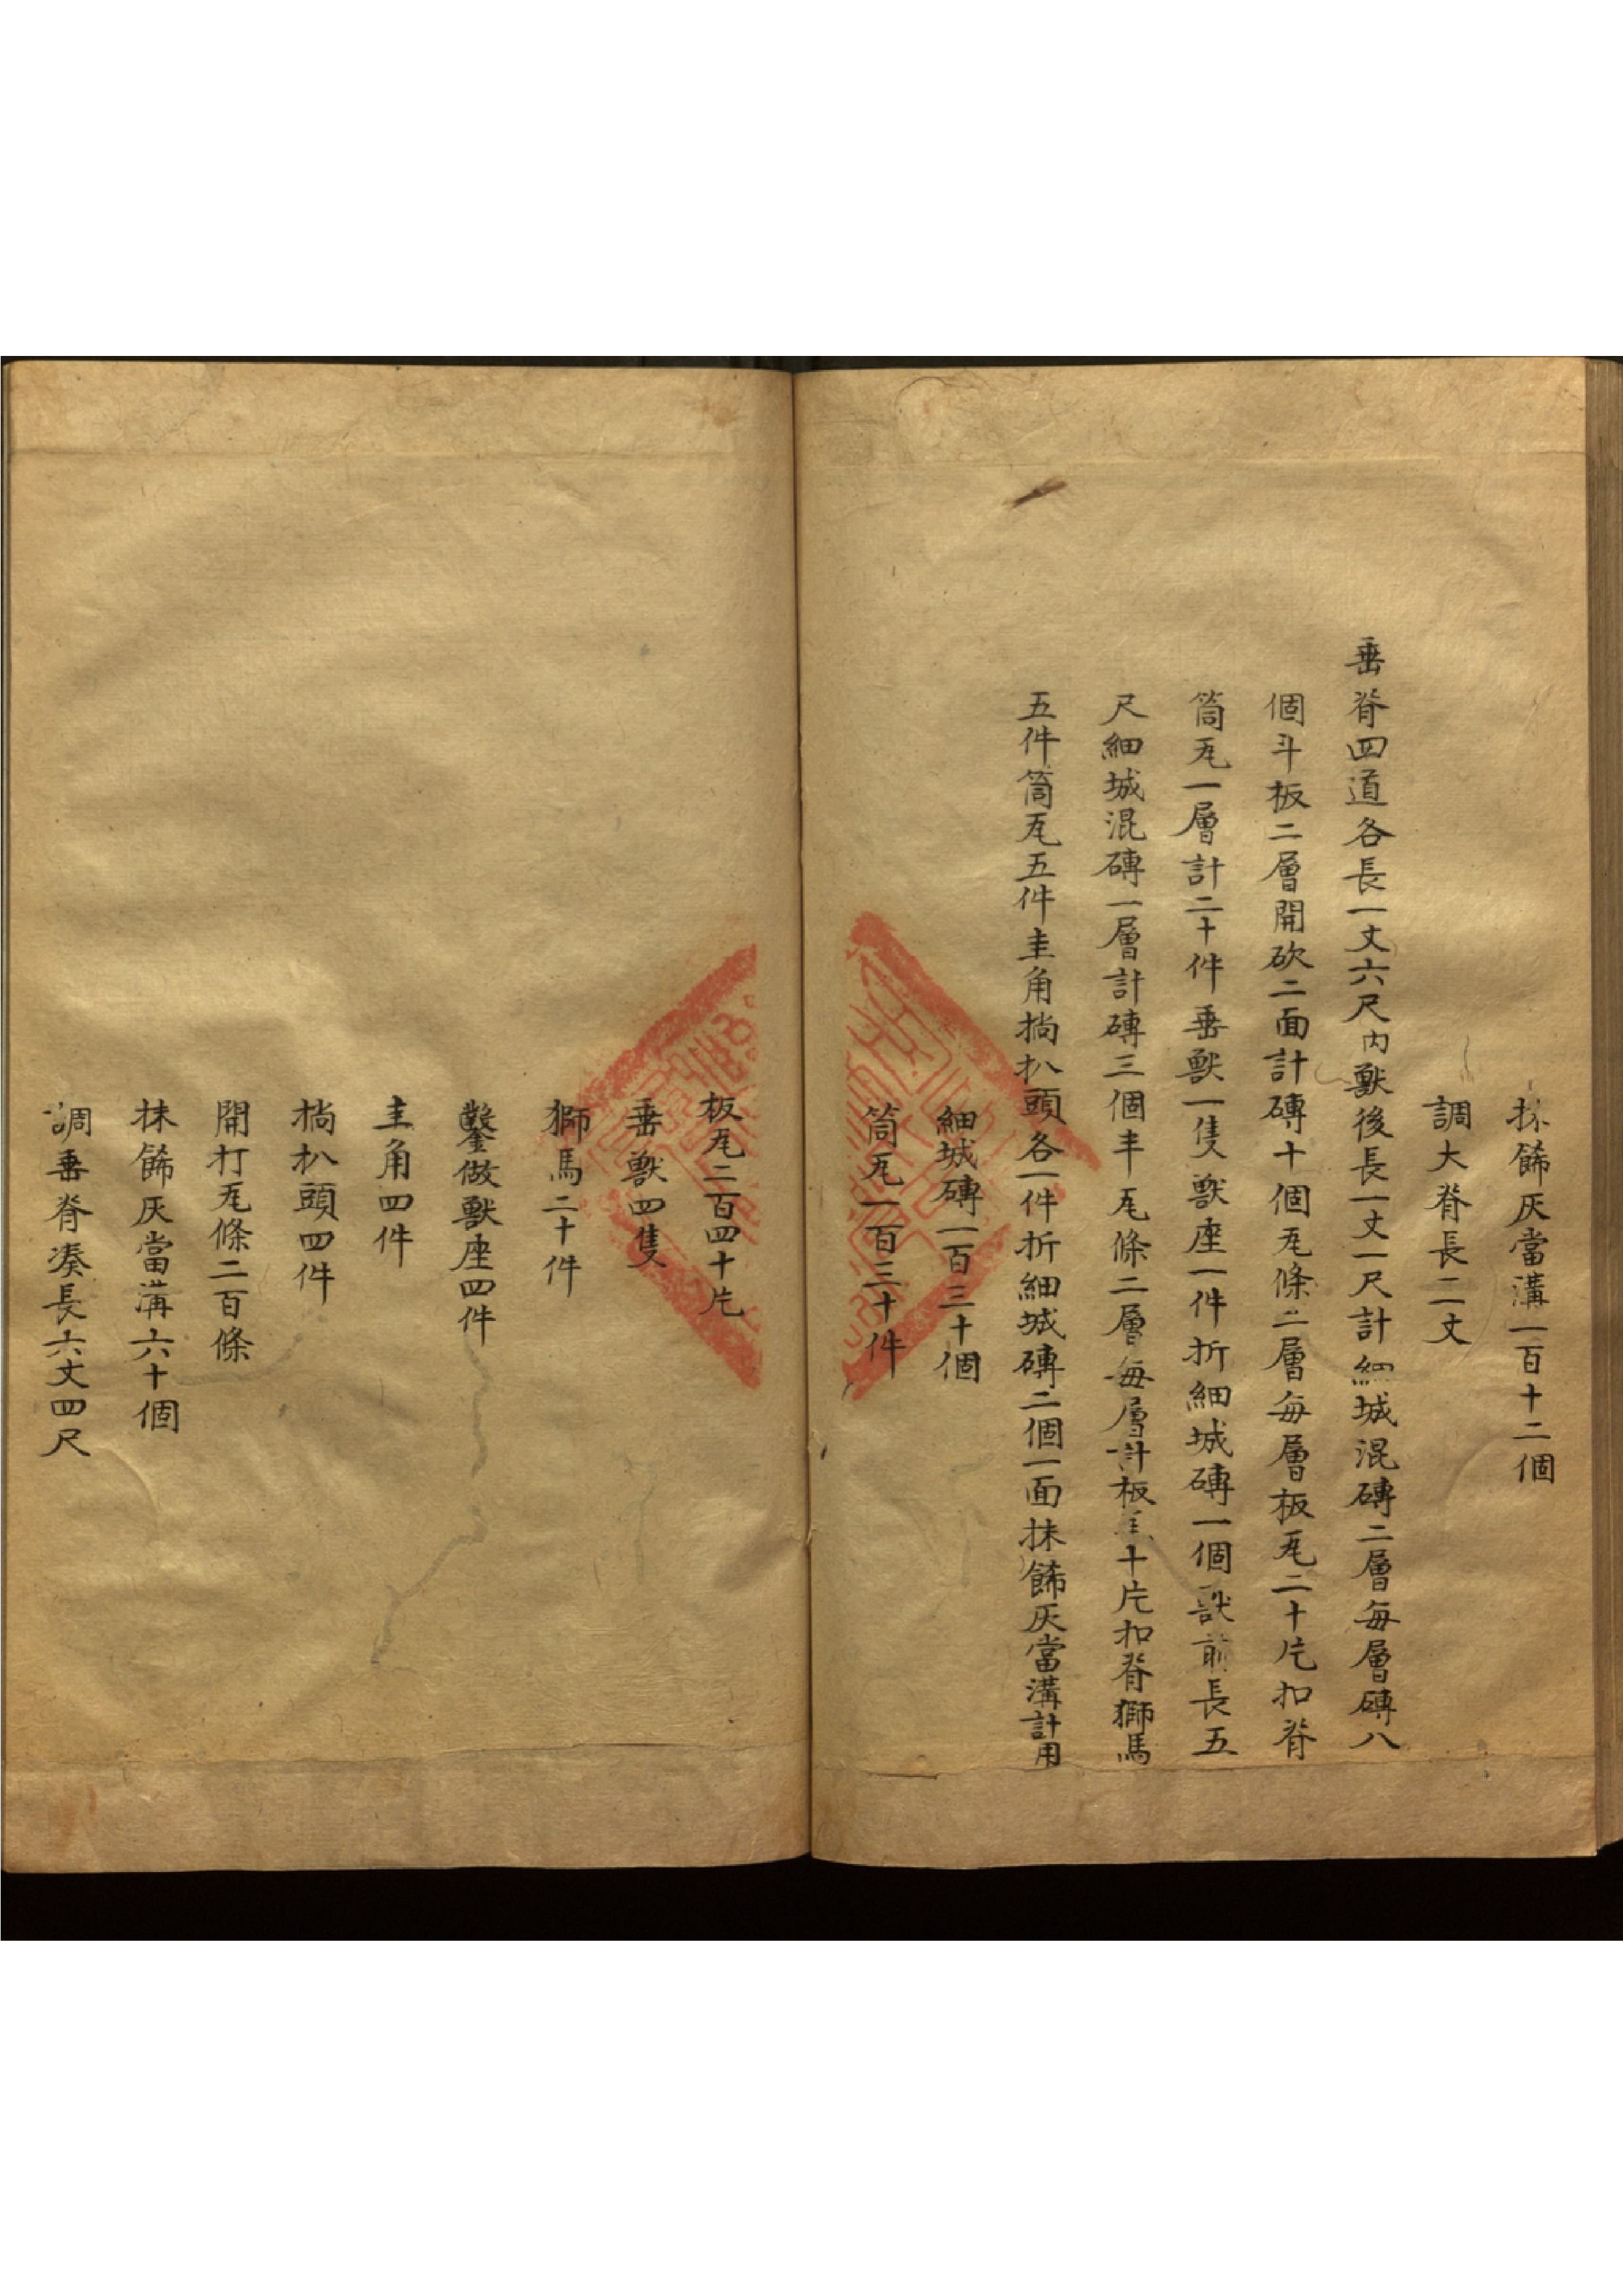 抹餙灰當溝一百十二個
調大脊長二丈
垂脊四道各長一丈六尺内獸後長一丈一尺計細城混磚二層每層磚八
個斗板二層開砍二面計磚十個瓦條二層每層板瓦二十片扣脊
筒瓦一層計二十件垂獸一隻獸座一件折細城磚一個獸前長五
尺細城混磚一層計磚三個半瓦條二層每層計板瓦十片扣脊獅馬
五件筒瓦五件圭角捎扒頭各一件折細城磚二個一面抹餙灰當溝計用
細城磚一百三十個
筒瓦一百三十件
板瓦二百四十片
垂獸四隻
獅馬二十件
鑿做獸座四件
圭角四件
捎扒頭四件
開打瓦條二百條
抹餙灰當溝六十個
調垂脊凑長六丈四尺